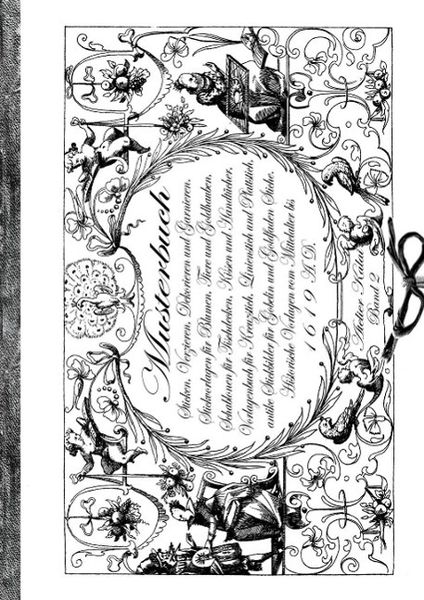 Musterbuch
Sticken, Verzieren, Dekorieren und Garnieren.
Stickvorlagen für Blumen, Tiere und Goldhauben.
Schablonen für Tischdecken, Kissen und Handtücher.
Vorlagenbuch für Kreuzstich, Leinenstich und Plattstich,
antike Stickbilder für Gobelin und Goldfaden Sticke.
Historische Vorlagen vom Mittelalter bis
1619 A.D.
Atelier
Band 2